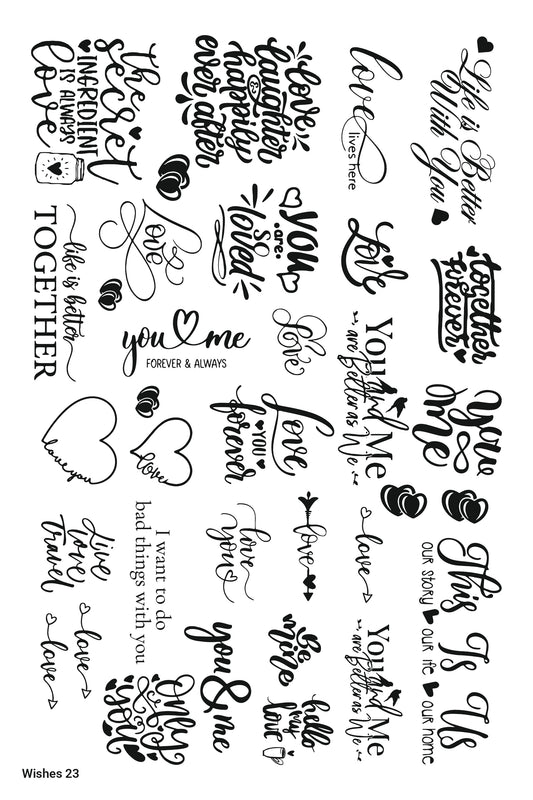 Life is Better
With You
together
forever
You
me
This Is Us
our story our life our home
love
lives here
Love
You And Me
are Better as We
love
You And Me
are Better as We
love
laughter
&
happily
ever after
you
are
so
loved
Love
Love
YOU
forever
love
Be
mine
hello
my
love
love
you
you & me
the
secret
INGREDIENT
IS ALWAYS
love
Love
you me
FOREVER & ALWAYS
love
I want to do
bad things with you
Only
you
life is better
TOGETHER
love you
Live
love
travel
love
love
Wishes 23